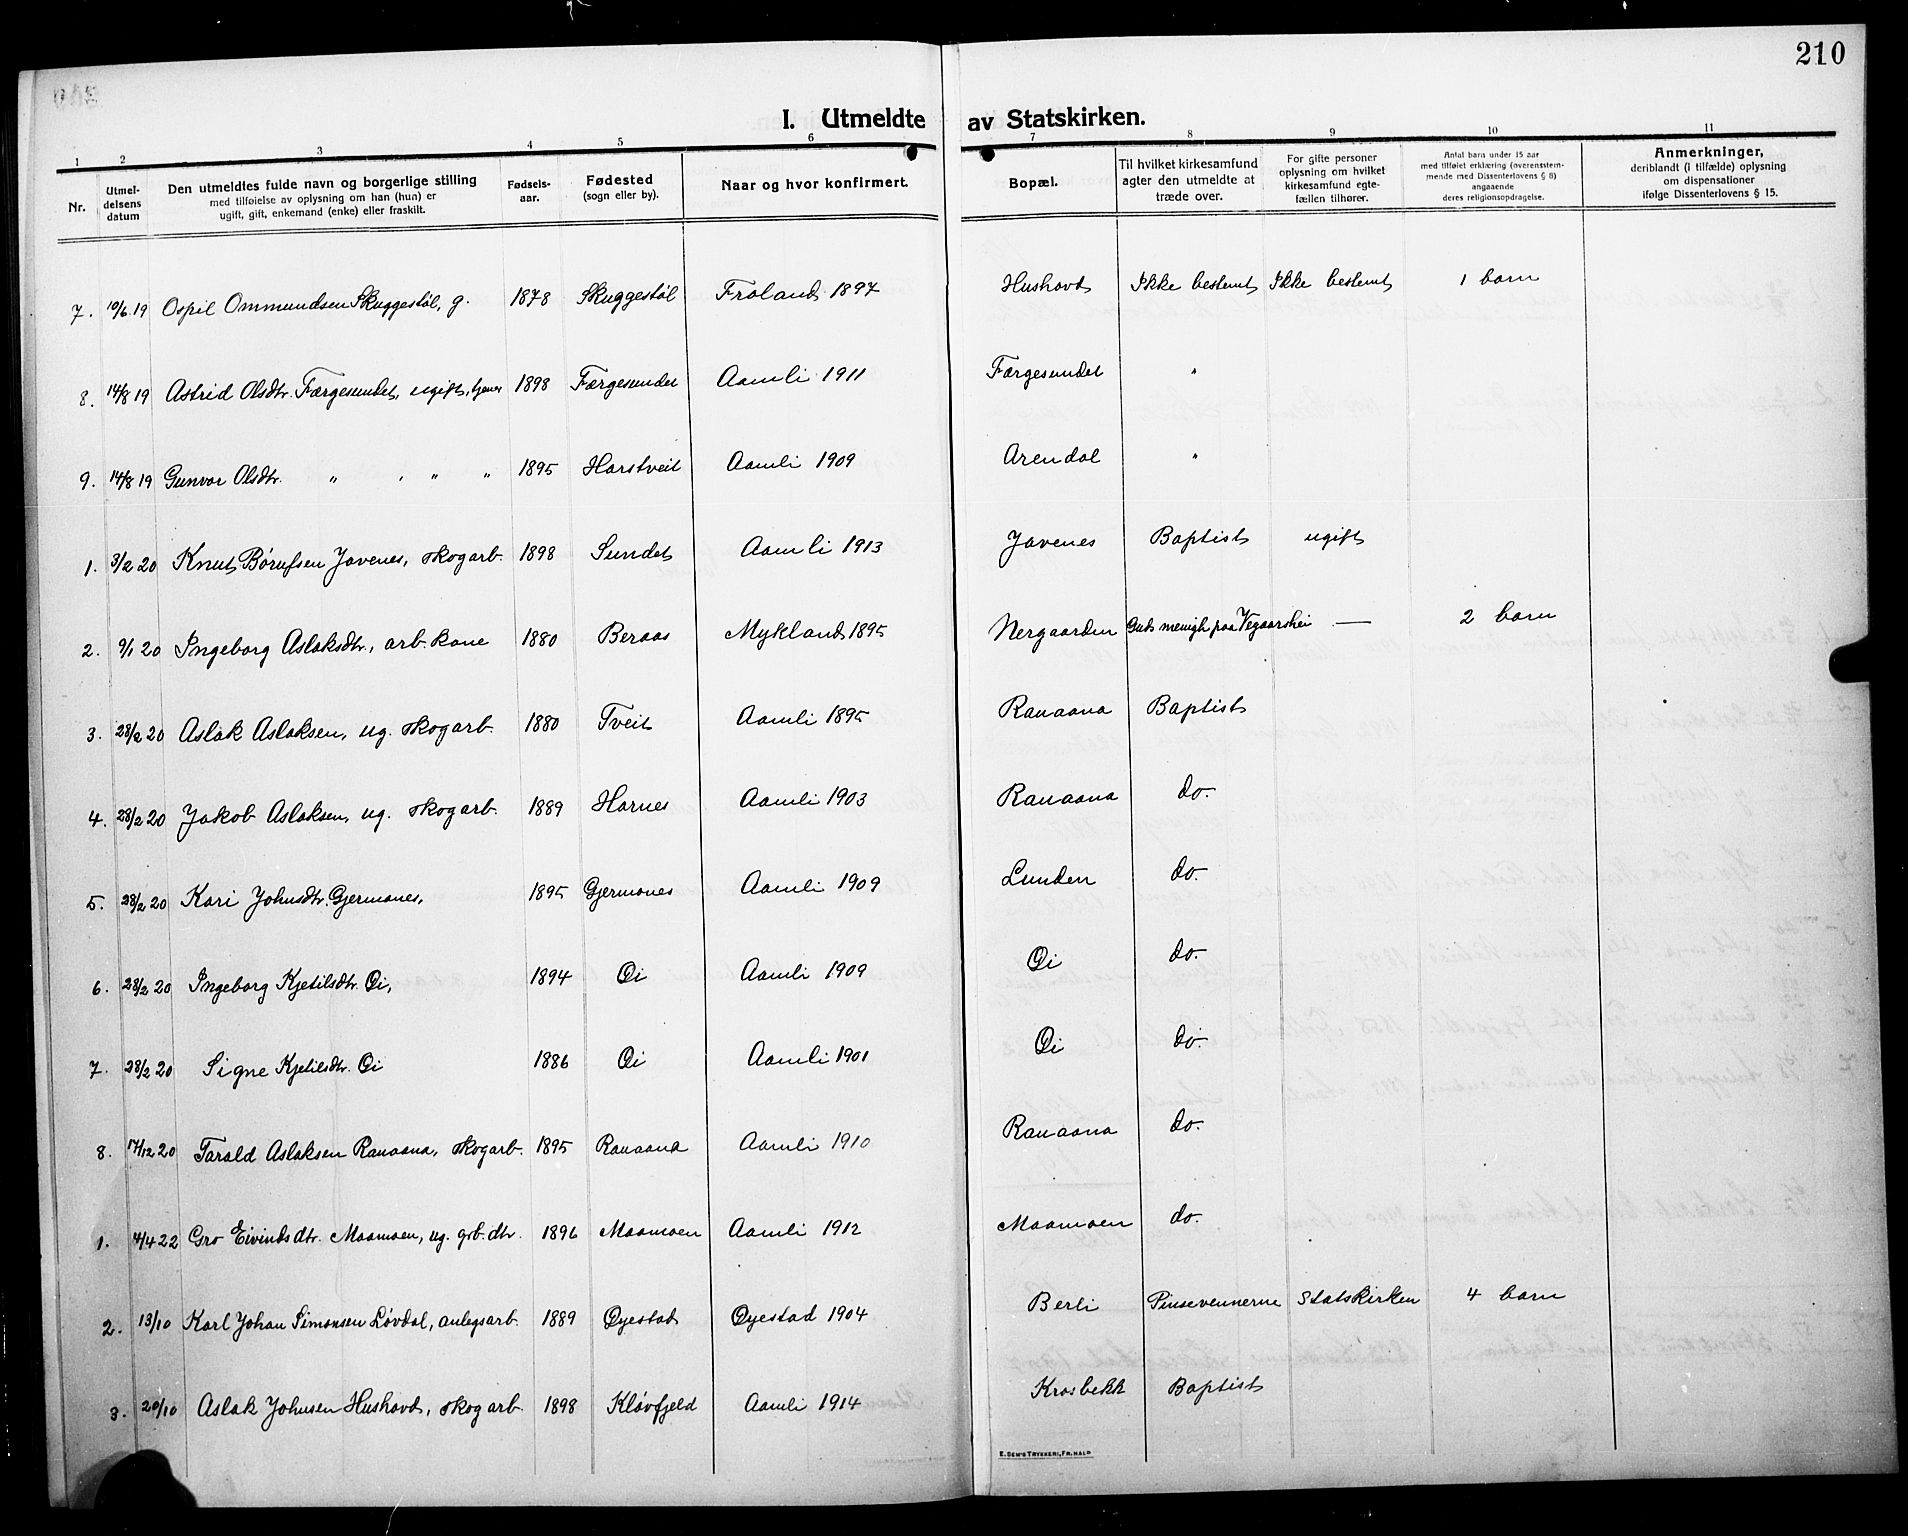 210
I. Utmeldte av Statskirken.
1 2 3 4 5 6 7 8 9 10 11
Nr.
Utmel-
delsens
datum
Den utmeldtes fulde navn og borgerlige stilling
med tilføielse av oplysning om han (hun) er
ugift, gift, enkemand (enke) eller fraskilt.
Fødsels-
aar.
Fødested
(sogn eller by).
Naar og hvor konfirmert.
Bopæl.
Til hvilket kirkesamfund
agter den utmeldte at
træde over.
For gifte personer
oplysning om hvilket
kirkesamfund egte-
fællen tilhører.
Antal barn under 15 aar
med tilføiet erklæring (overensstem-
mende med Dissenterlovens § 8)
angaaende
deres religionsopdragelse.
Anmerkninger,
deriblandt (i tilfælde) oplysning
om dispensationer
ifølge Dissenterlovens § 15.
7. 10/6 19 Ospil Ommundsen Skuggestøl, g. 1878 Skuggestøl Froland 1897 Hushovd Ikke bestemt Ikke bestemt 1 barn
8. 14/8 19 Astrid Olsdtr. Færgesundet, ugift, tjener 1898 Færgesundet Aamli 1911 Færgesundet "
9. 14/8 19 Gunvor Olsdtr. " , " " 1895 Harstveit Aamli 1909 Arendal "
1. 3/2 20 Knut Børufsen Javenes, skogarb. 1898 Sundet Aamli 1913 Javenes Baptist ugift
2. 9/1 20 Ingeborg Aslaksdtr., arb. kone 1880 Beraas Mykland 1895 Nergaarden Guds menigh paa Vegaarshei — 2 barn
3. 28/2 20 Aslak Aslaksen, ug. skogarb. 1880 Tveit Aamli 1895 Ranaana Baptist
4. 28/2 20 Jakob Aslaksen, ug. skogarb. 1889 Harnes Aamli 1903 Ranaana do.
5. 28/2 20 Kari Johnsdtr. Gjermones, 1895 Gjermones Aamli 1909 Lunden do.
6. 28/2 20 Ingeborg Kjetilsdtr. Øi, 1894 Øi Aamli 1909 Øi do.
7. 28/2 20 Signe Kjetilsdtr. Øi 1886 Øi Aamli 1901 Øi do.
8. 17/12 20 Tarald Aslaksen Ranaana, skogarb. 1895 Ranaana Aamli 1910 Ranaana do.
1. 4/4 22 Gro Eivindsdtr. Maamoen, ug. grb. dtr. 1896 Maamoen Aamli 1912 Maamoen do.
2. 13/10 Karl Johan Simonsen Løvdal, anlegsarb. 1889 Øyestad Øyestad 1904 Berli Pinsevennerne Statskirken 4 barn
3. 20/10 Aslak Johnsen Hushovd, skogarb. 1898 Kløvfjeld Aamli 1914 Krosbekk Baptist
E. Sem's Trykkeri, Fr.hald